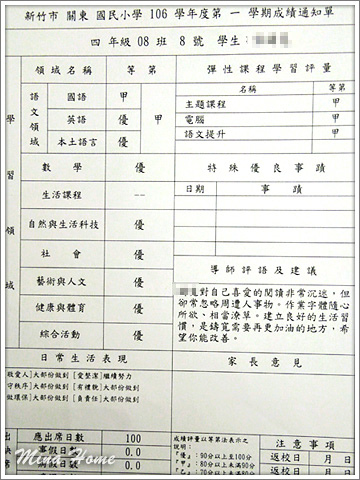 新竹市 關東 國民小學 106 學年度第 一 學期成績通知單
四 年級 08 班 8 號 學生：
學習領域
領域名稱 等第
語文領域 國語 甲 甲
英語 優
本土語言 優
數學 優
生活課程 --
自然與生活科技 優
社會 優
藝術與人文 優
健康與體育 優
綜合活動 優
彈性課程學習評量
名稱 等第
主題課程 甲
電腦 甲
語文提升 甲
特殊優良事蹟
日期 事蹟
導師評語及建議
對自己喜愛的閱讀非常沉迷，但
卻常忽略周遭人事物。作業字體隨心
所欲、相當潦草。建立良好的生活習
慣，是鑄寬需要再更加油的地方，希
望你能改善。
日常生活表現
敬愛人]大部份做到 [愛整潔]繼續努力
守秩序]大部份做到 [有禮貌]大部份做到
做環保]大部份做到 [負責任]大部份做到
家長意見
出缺席 應出席日數 100
事假日 0.0
病假日 0.0
成績評量以等第法表示之
說明：
『優』：90分以上至100分
『甲』：80分以上未滿90分
注意事項
返校日 月 日
返校日 月 日
Mina Home